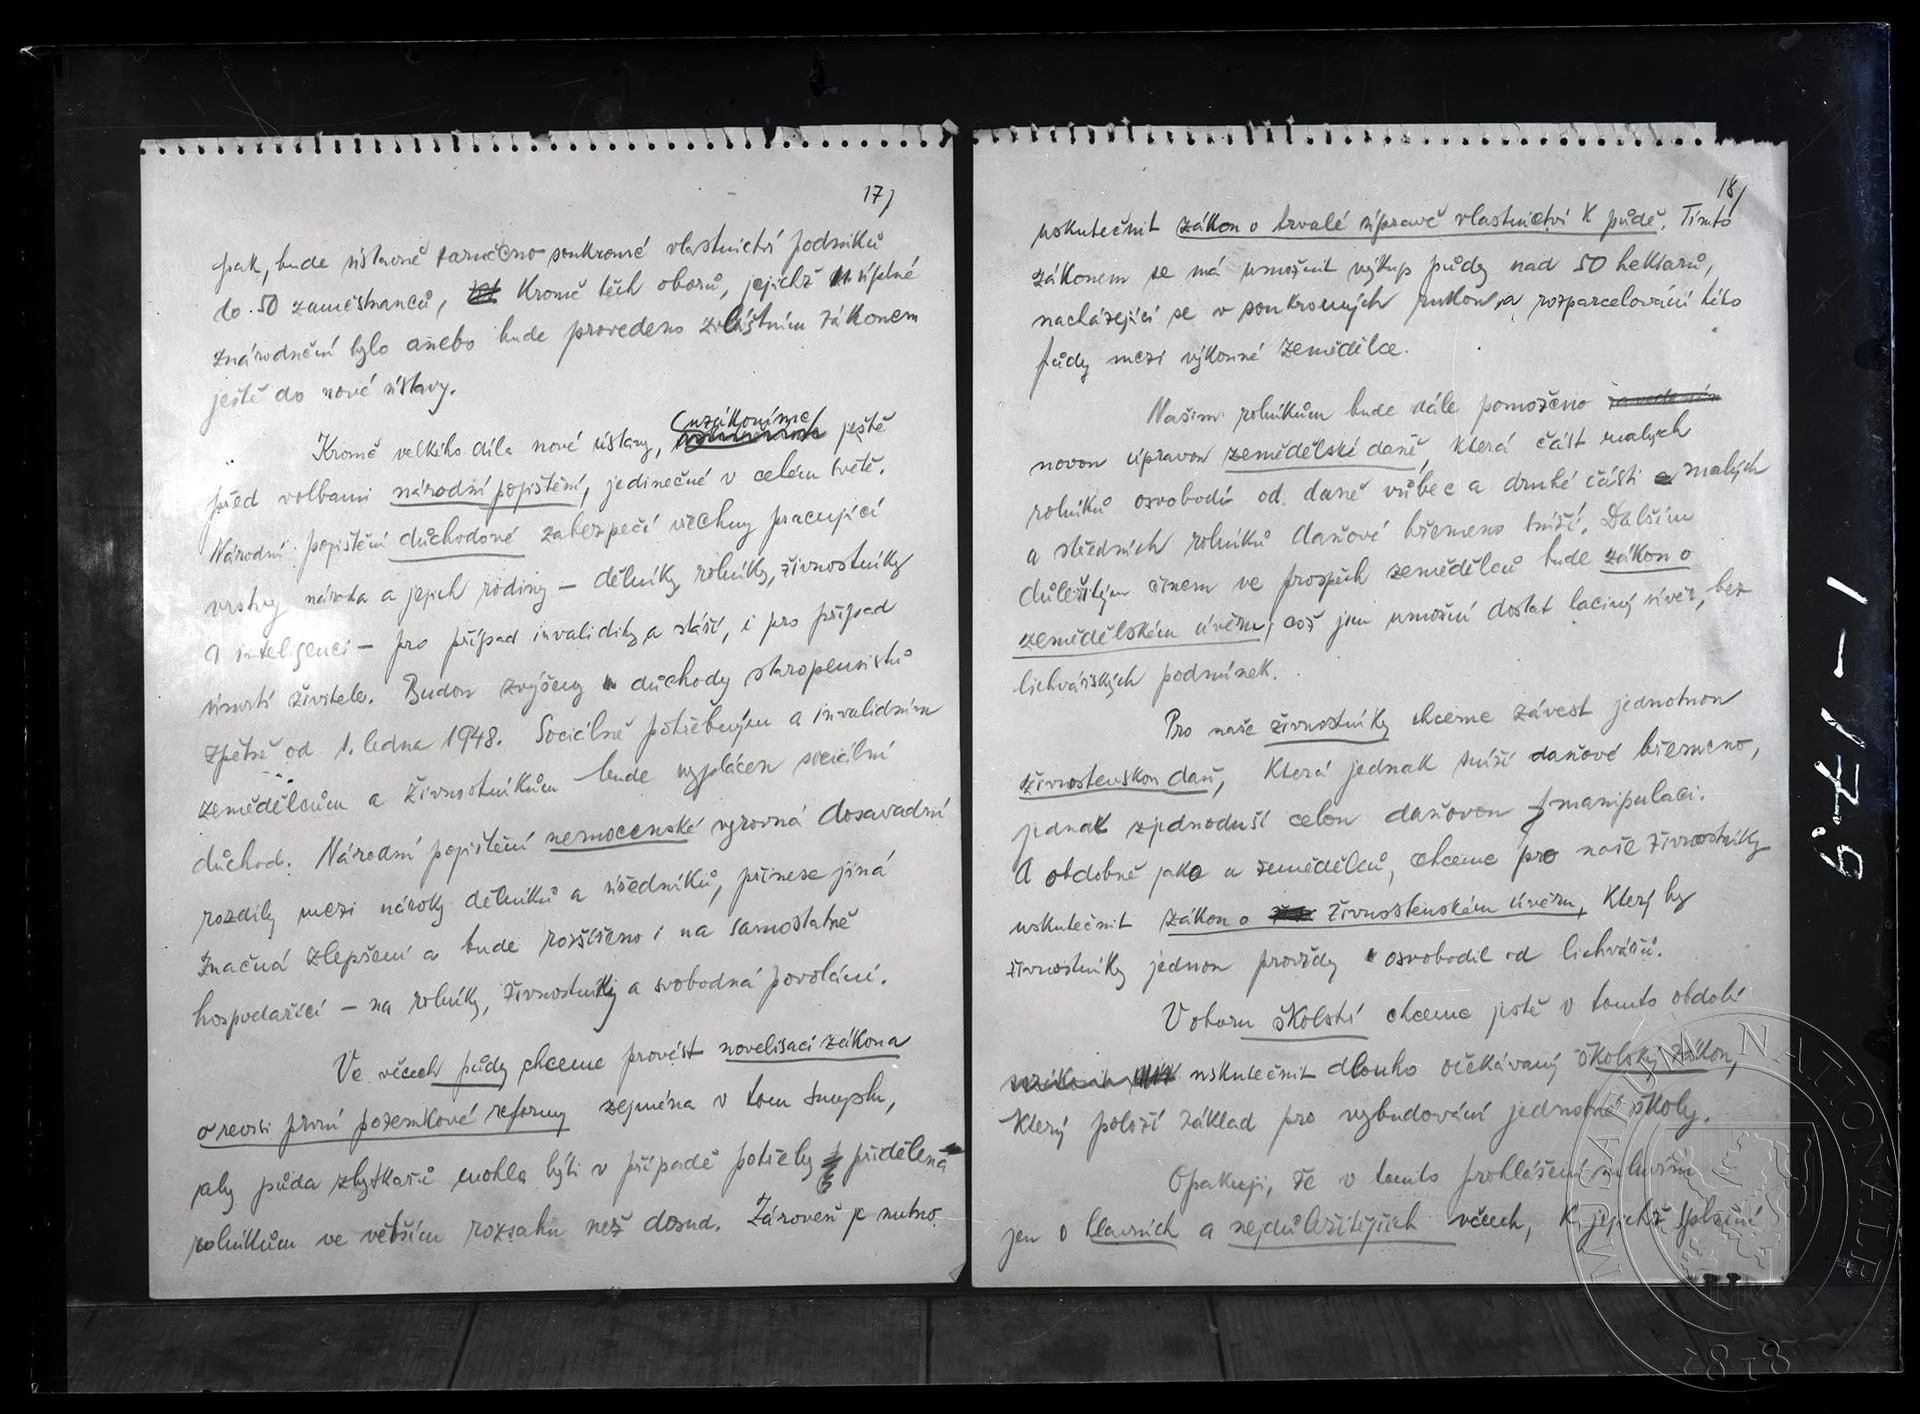 17)
pak, bude ústavně zaručeno soukromé vlastnictví podniků
do 50 zaměstnanců, kromě těch oborů, jejichž úplné
znárodnění bylo anebo bude provedeno zvláštním zákonem
ještě do nové ústavy.
uzákoníme
Kromě velkého díla nové ústavy, ještě
před volbami národní pojištění, jedinečné v celém světě.
Národní pojištění důchodové zabezpečí všechny pracující
vrstvy národa a jejich rodiny – dělníky, rolníky, živnostníky
a inteligenci – pro případ invalidity a stáří, i pro případ
úmrtí živitele. Budou zvýšeny důchody staropensistů
zpětně od 1. ledna 1948. Sociálně potřebným a invalidním
zemědělcům a živnostníkům bude vyplácen sociální
důchod. Národní pojištění nemocenské vyrovná dosavadní
rozdíly mezi nároky dělníků a úředníků, přinese jiná
značná zlepšení a bude rozšířeno i na samostatně
hospodařící – na rolníky, živnostníky a svobodná povolání.
Ve věcech půdy chceme provést novelisaci zákona
o revisi první pozemkové reformy zejména v tom smyslu,
aby půda zbytkařů mohla býti v případě potřeby přidělena
rolníkům ve větším rozsahu než dosud. Zároveň je nutno
18)
uskutečnit zákon o trvalé úpravě vlastnictví k půdě. Tímto
zákonem se má umožnit výkup půdy nad 50 hektarů,
nacházející se v soukromých rukou, a rozparcelování této
půdy mezi výkonné zemědělce.
Našim rolníkům bude dále pomoženo
novou úpravou zemědělské daně, která část malých
rolníků osvobodí od daně vůbec a druhé části malých
a středních rolníků daňové břemeno sníží. Dalším
důležitým činem ve prospěch zemědělců bude zákon o
zemědělském úvěru, což jim umožní dostat laciný úvěr, bez
lichvářských podmínek.
Pro naše živnostníky chceme zavést jednotnou
živnostenskou daň, která jednak sníží daňové břemeno,
jednak zjednoduší celou daňovou manipulaci.
A obdobně jako u zemědělců, chceme pro naše živnostníky
uskutečnit zákon o živnostenském úvěru, který by
živnostníky jednou provždy osvobodil od lichvářů.
V oboru školství chceme ještě v tomto období
uskutečnit dlouho očekávaný školský zákon,
který položí základ pro vybudování jednotné školy.
Opakuji, že v tomto prohlášení mluvím
jen o hlavních a nejdůležitějších věcech, k jejichž splnění
1-1779
MUSAEUM NATIONALE
1818